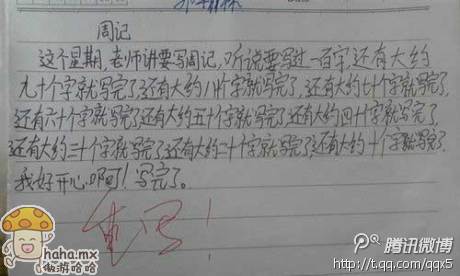 周记
这个星期,老师讲要写周记,听说要写过一百字,还有大约
九十个字就写完了,还有大约八十个字就写完了,还有大约七十个字就写完了,
还有六十个字就写完了还有大约五十个字写完了还有大约四十字就写完了
还有大约三十个字就写完了还有大约二十个字就写完了,还有大约十个字就写完了.
我好开心啊!写完了。
重写!
haha.mx
傲游哈哈
腾讯微博
http://t.qq.com/qqx5